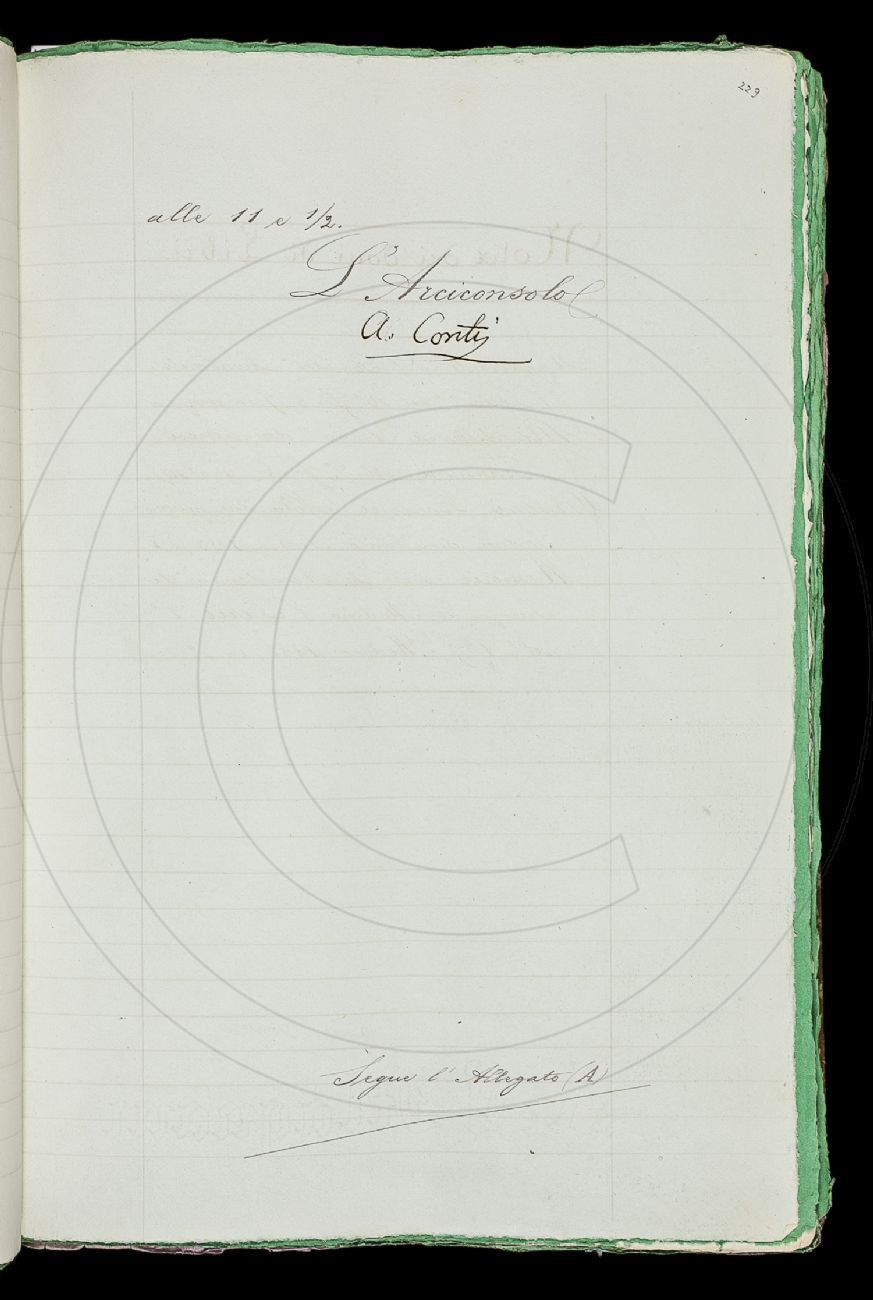 229
alle 11 e 1/2.
L'Arciconsolo
A. Conti
Segue l'Allegato (A)